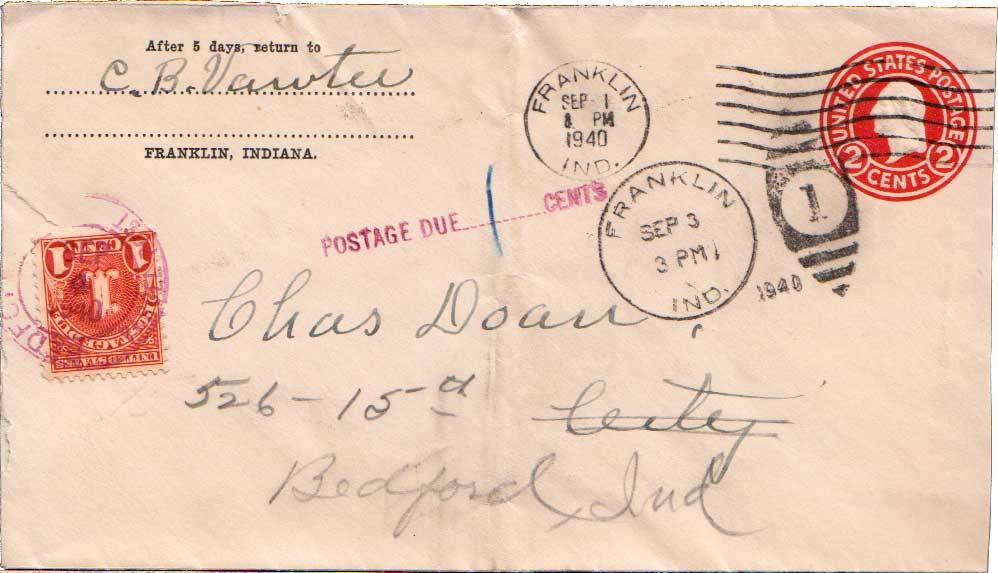 After 5 days, return to
C. B. Vawter
FRANKLIN, INDIANA.
FRANKLIN
SEP 1
8 PM
1940
IND.
UNITED STATES POSTAGE
2 2
CENTS
POSTAGE DUE CENTS
1
FRANKLIN
SEP 3
3 PM
IND.
1940
1
1 1
POSTAGE DUE
UNITED STATES
Chas Doan,
526-15th
City
Bedford, Ind